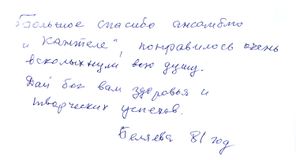 Большое спасибо ансамблю
и „Кантеле", понравилось очень
всколыхнули всю душу.
Дай бог вам здоровья и
творческих успехов.
Беляева 81 год